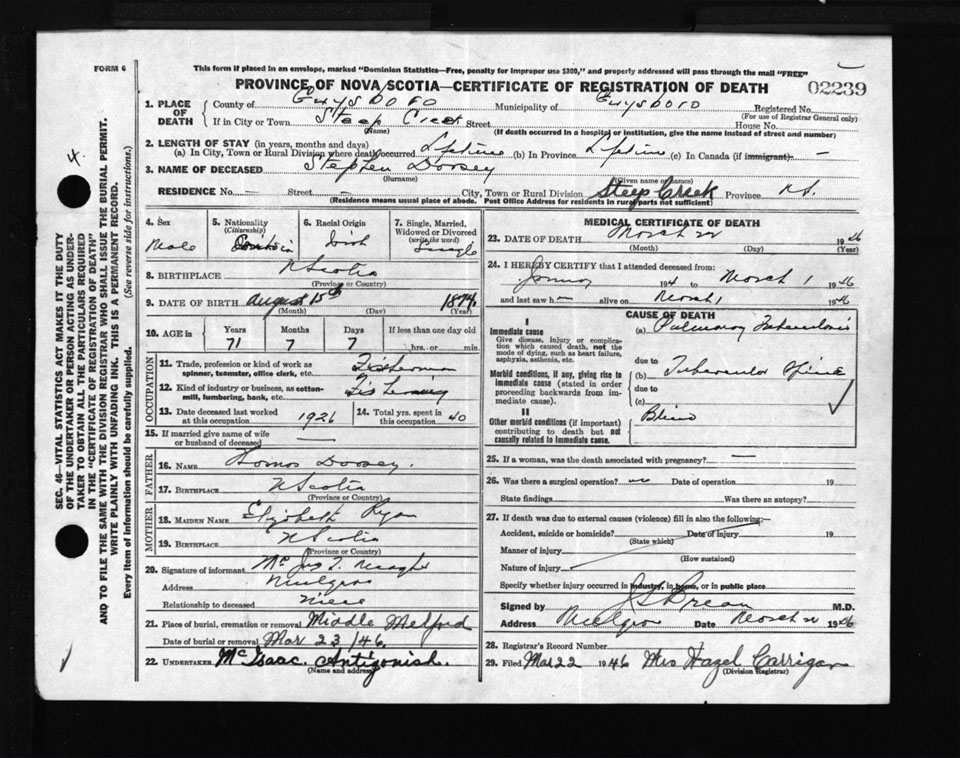 FORM 6
This form if placed in an envelope, marked "Dominion Statistics—Free, penalty for improper use $300," and properly addressed will pass through the mail "FREE"
PROVINCE OF NOVA SCOTIA—CERTIFICATE OF REGISTRATION OF DEATH 02239
1. PLACE OF DEATH
County of Guysboro Municipality of Guysboro Registered No.
(For use of Registrar General only)
If in City or Town Steep Creek Street House No.
(Name) (If death occurred in a hospital or institution, give the name instead of street and number)
2. LENGTH OF STAY (in years, months and days)
(a) In City, Town or Rural Division where death occurred Lifetime (b) In Province Lifetime (c) In Canada (if immigrant) —
3. NAME OF DECEASED Stephen Dorsey
(Surname) (Given name or names)
RESIDENCE No. — Street — City, Town or Rural Division Steep Creek Province N.S.
(Residence means usual place of abode. Post Office Address for residents in rural parts not sufficient)
4. Sex Male
5. Nationality (Citizenship)
6. Racial Origin Irish
7. Single, Married, Widowed or Divorced (write the word) Single
8. BIRTHPLACE N Scotia
(Province or Country)
9. DATE OF BIRTH August 15th 1874
(Month) (Day)
10. AGE in Years Months Days If less than one day old
71 7 7 hrs. or min.
OCCUPATION
11. Trade, profession or kind of work as spinner, teamster, office clerk, etc. Fisherman
12. Kind of industry or business, as cotton-mill, lumbering, bank, etc. Fishing
13. Date deceased last worked at this occupation 1926
14. Total yrs. spent in this occupation 40
15. If married give name of wife or husband of deceased —
FATHER
16. NAME Thomas Dorsey.
17. BIRTHPLACE N Scotia
(Province or Country)
MOTHER
18. MAIDEN NAME Elizabeth Ryan
19. BIRTHPLACE N Scotia
(Province or Country)
20. Signature of informant
Address Mulgrave
Relationship to deceased Niece
21. Place of burial, cremation or removal Middle Melford
Date of burial or removal Mar 23/46.
22. UNDERTAKER McIsaac. Antigonish.
(Name and address)
MEDICAL CERTIFICATE OF DEATH
23. DATE OF DEATH March 22 1946
(Month) (Day)
24. I HEREBY CERTIFY that I attended deceased from:
194 to March 1 1946
and last saw h — alive on March 1 1946
CAUSE OF DEATH
I
Immediate cause
Give disease, injury or complication which caused death, not the mode of dying, such as heart failure, asphyxia, asthenia, etc.
(a) Pulmonary Tuberculosis
due to
Morbid conditions, if any, giving rise to immediate cause (stated in order proceeding backwards from immediate cause).
(b) Tubercular Spine
due to
(c)
II
Other morbid conditions (if important) contributing to death but not causally related to immediate cause.
Blind
25. If a woman, was the death associated with pregnancy? —
26. Was there a surgical operation? no Date of operation 19
State findings Was there an autopsy?
27. If death was due to external causes (violence) fill in also the following:—
Accident, suicide or homicide? Date of injury 19
(State which)
Manner of injury
(How sustained)
Nature of injury
Specify whether injury occurred in industry, in home, or in public place
Signed by M.D.
Address Mulgrave Date March 22 1946
28. Registrar's Record Number
29. Filed Mar 22 1946 Mrs Hazel Carrigan
(Division Registrar)
SEC. 46—VITAL STATISTICS ACT MAKES IT THE DUTY
OF THE UNDERTAKER OR PERSON ACTING AS UNDER-
TAKER TO OBTAIN ALL THE PARTICULARS REQUIRED
IN THE "CERTIFICATE OF REGISTRATION OF DEATH"
AND TO FILE THE SAME WITH THE DIVISION REGISTRAR WHO SHALL ISSUE THE BURIAL PERMIT.
WRITE PLAINLY WITH UNFADING INK. THIS IS A PERMANENT RECORD.
Every item of information should be carefully supplied. (See reverse side for instructions.)
4.